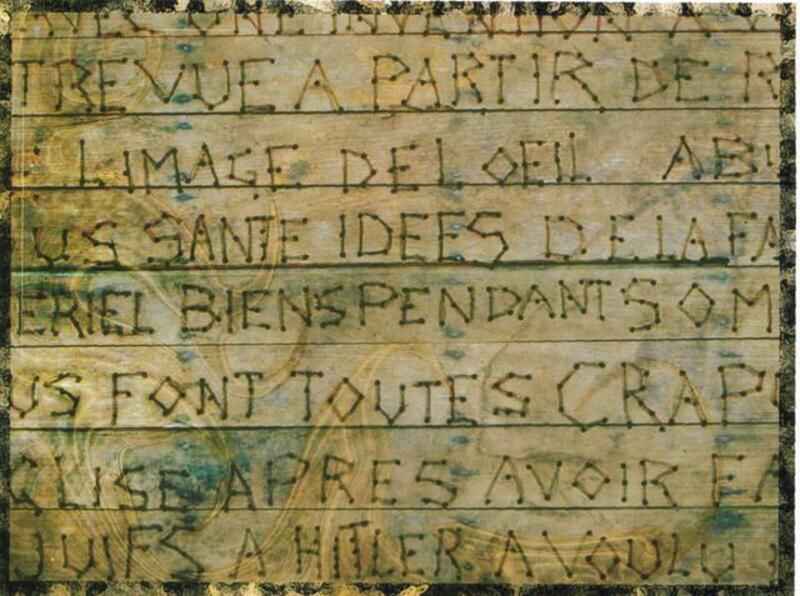 UNE INVENTION A
TREVUE A PARTIR DE R
L IMAGE DE L OEIL AB
US SANTE IDEES DE LA FA
ERIEL BIENS PENDANT SOM
US FONT TOUTES CRAP
GLISE APRES AVOIR FA
JUIFS A HITLER A VOULU